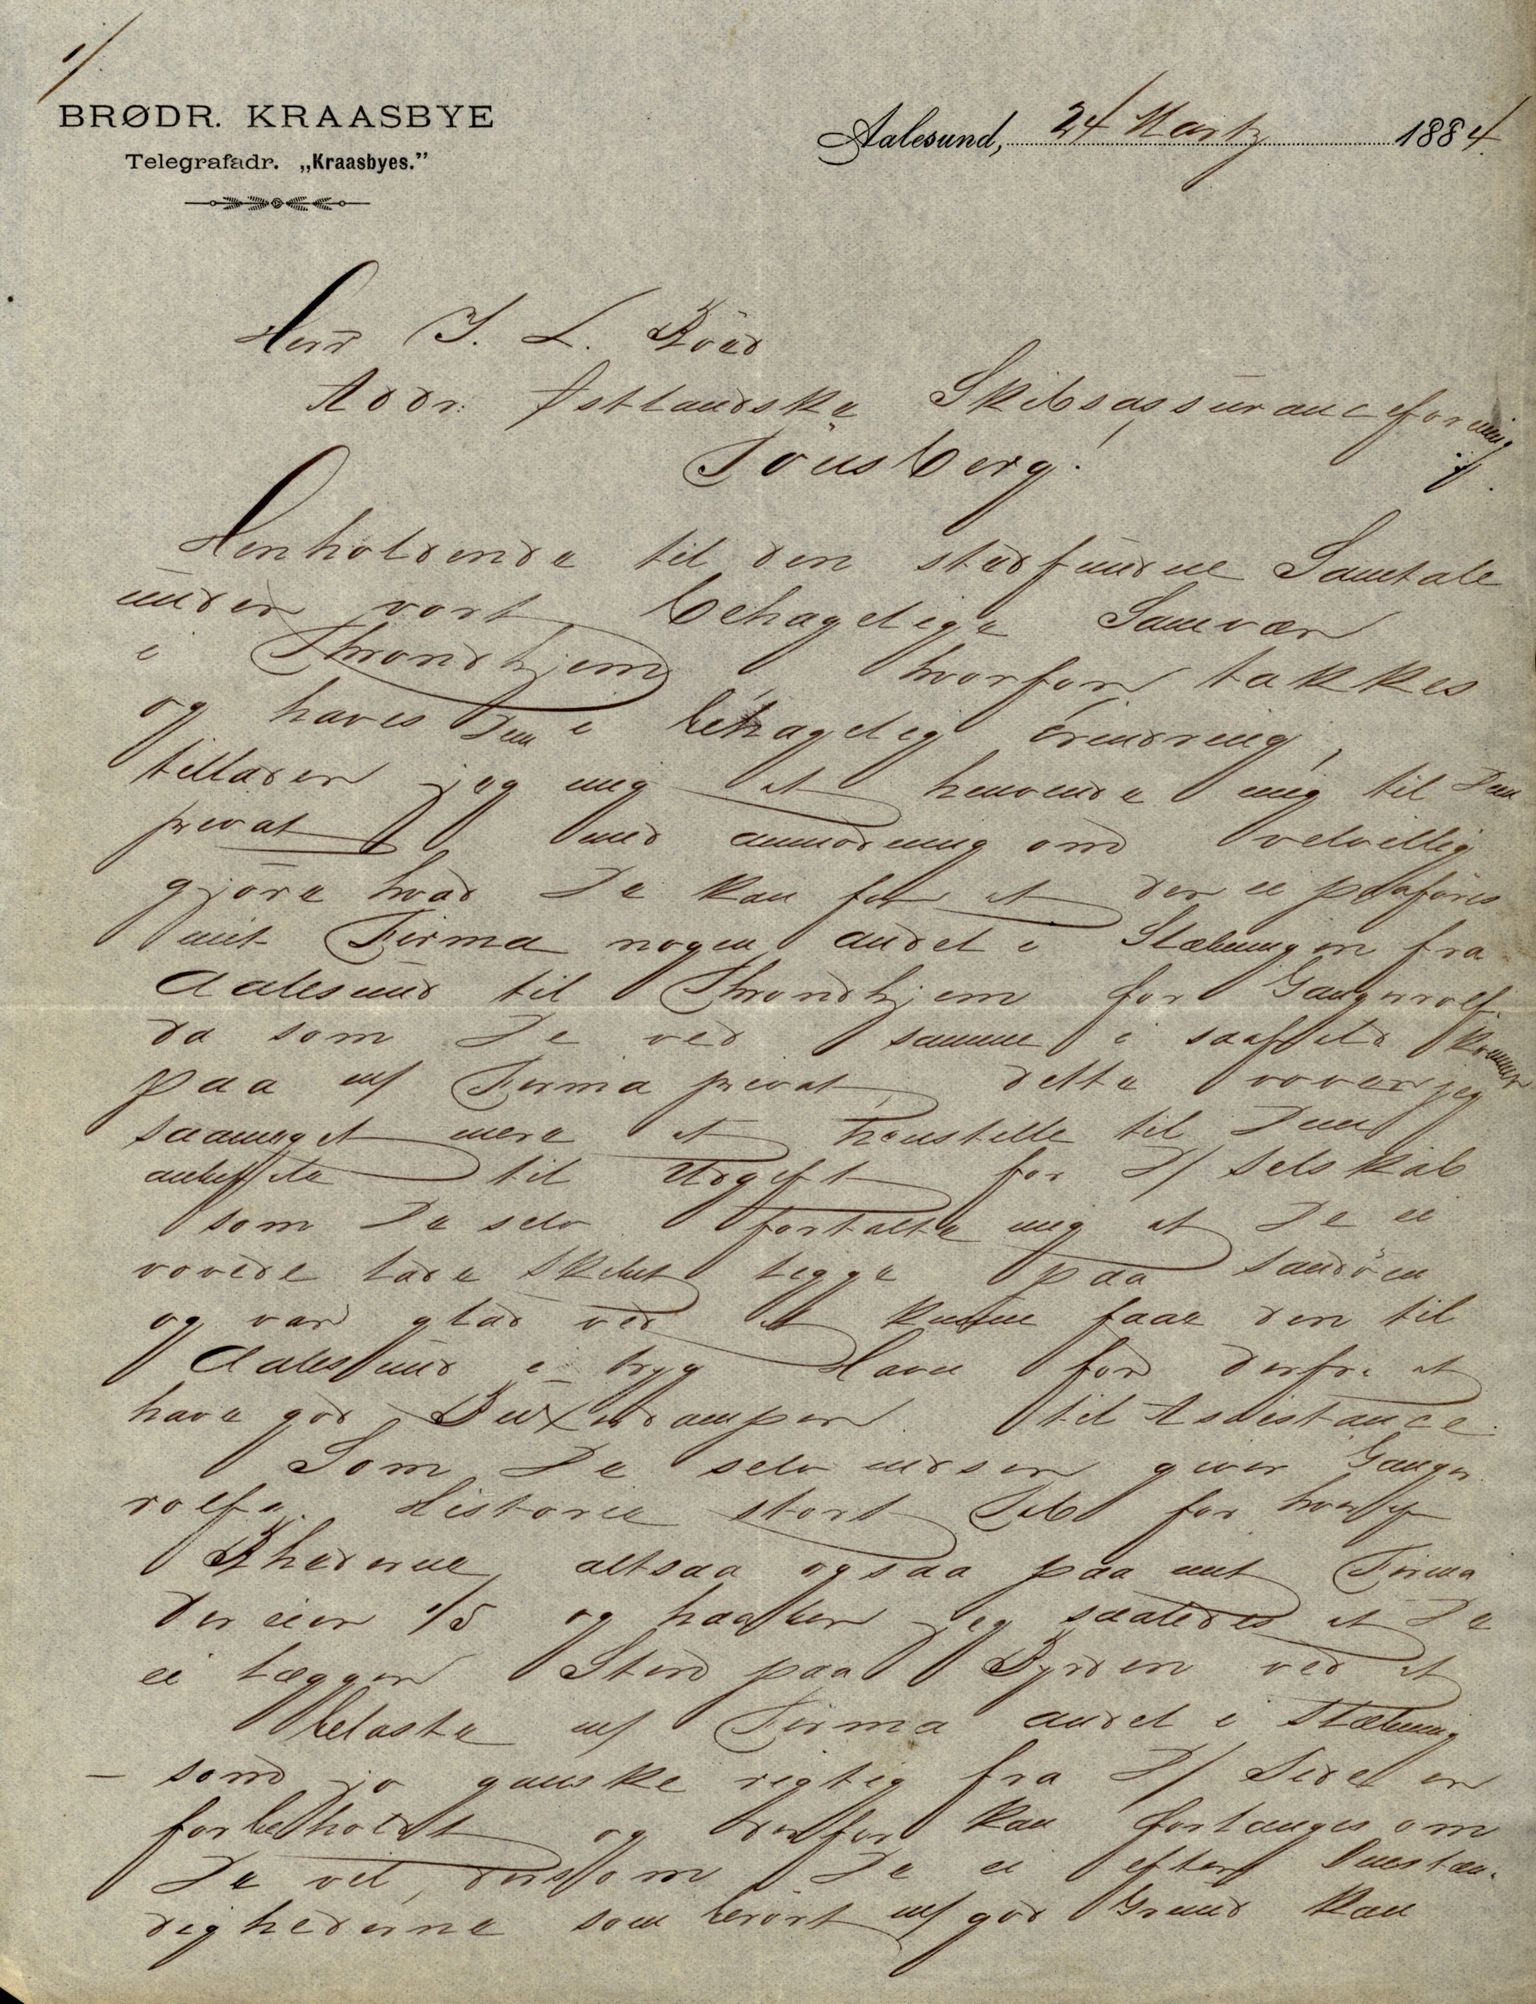 1/
BRØDR. KRAASBYE
Telegrafadr. „Kraasbyes.”
Aalesund, 24 Martz 1884
Herr I. L. Röed
Addr. Østlandske Skibsassuranceforning
Tönsberg!
Henholdende til den stedfundne Samtale
under vort behagelige Samvær
i Throndhjem, hvorfor takkes
og haves Dem i behagelig erindring,
tillader jeg mig at henvende mig til Dem
privat med anmodning om velvillig
gjöre hvad De kan for at der ei paaföres
mit Firma nogen andel i Slæbningen fra
Aalesund til Throndhjem for Gangerrolf
da som De ved samme i saafald kommer
paa m/ Firma privat, dette vover jeg
saameget mere at henstille til Dem
til Udgift for D/ Selskab
som De selv fortalte mig at De ei
vovede lade Skibet ligge paa Sandöen
og var glad ved at kunne faae den til
Aalesund i tryg Havn for derfra at
have god Buxerdamper til Assistance.
Som De selv indser giver Ganger
rolfs Historie stort Tab for
Rhederne, altsaa ogsaa paa mit Firma
der eier 1/5 og haaber jeg saaledes at De
ei lægger Steen paa Byrden ved at
belaste m/ Firma andel i Slæbning
– som jo ganske rigtig fra D/ Side er
forbeholdt og derfor kan forlanges om
De vil, dersom De ei efter Omstæn-
dighederne som berört m/ god Grund kan